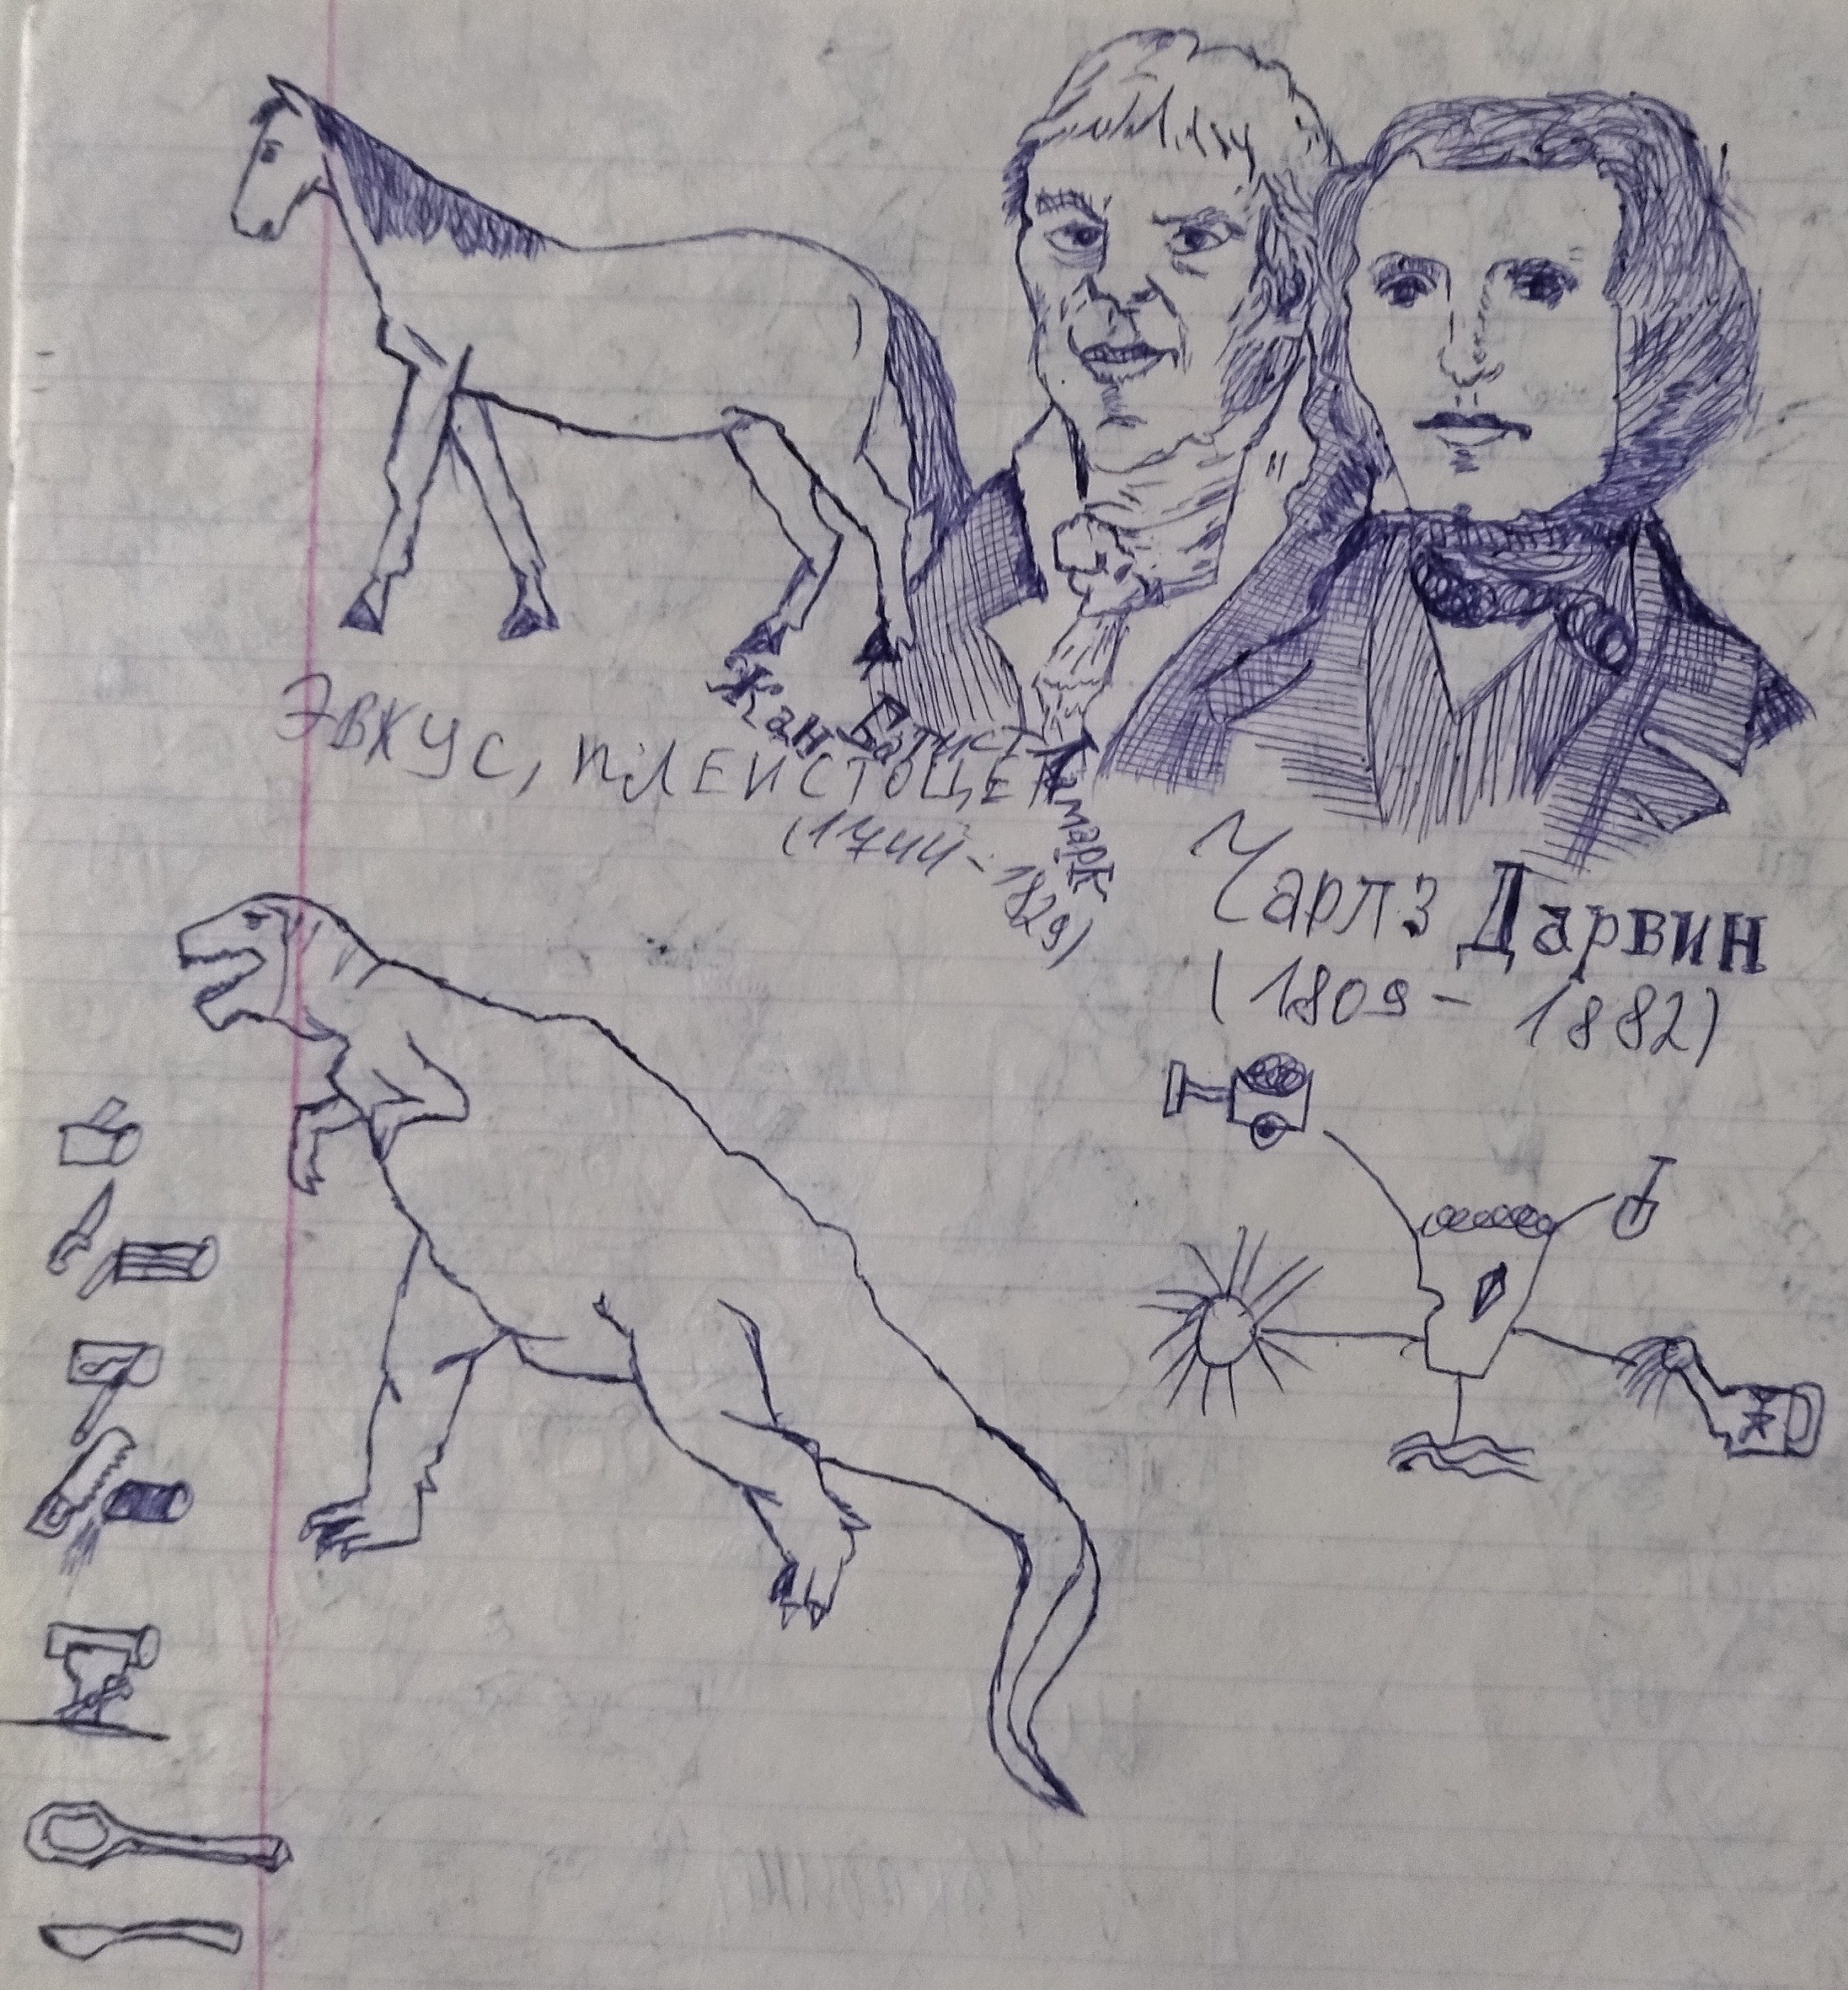 ЭВКУС, ПЛЕИСТОЦЕН
Жан Батист Ламарк
(1744-1829)
Чарлз Дарвин
(1809-1882)